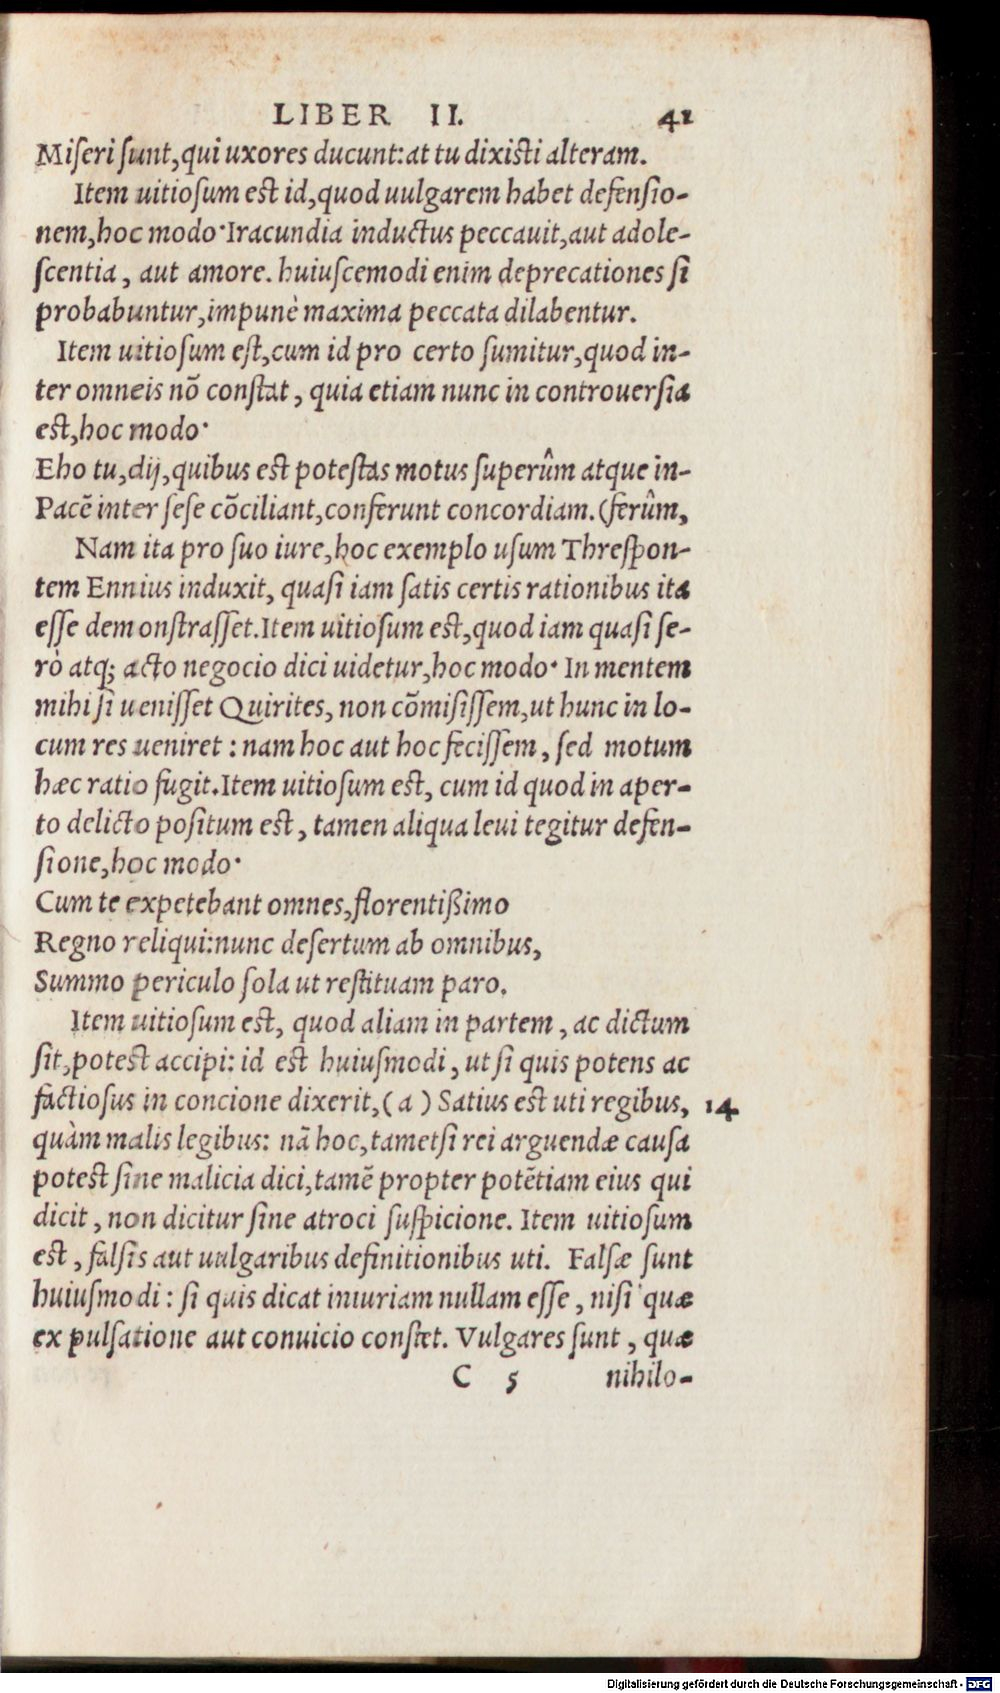 LIBER II. 41
Miseri sunt,qui uxores ducunt:at tu dixisti alteram.
Item uitiosum est id,quod uulgarem habet defensio-
nem,hoc modo·Iracundia inductus peccauit,aut adole-
scentia, aut amore. huiuscemodi enim deprecationes si
probabuntur,impunè maxima peccata dilabentur.
Item uitiosum est,cum id pro certo sumitur,quod in-
ter omneis nõ constat, quia etiam nunc in controuersia
est,hoc modo·
Eho tu,dij,quibus est potestas motus superûm atque in-
Pacẽ inter sese cõciliant,conferunt concordiam.(ferûm,
Nam ita pro suo iure,hoc exemplo usum Threspon-
tem Ennius induxit, quasi iam satis certis rationibus ita
esse demonstrasset.Item uitiosum est,quod iam quasi se-
rò atq; acto negocio dici uidetur,hoc modo· In mentem
mihi si uenisset Quirites, non cõmisissem,ut hunc in lo-
cum res ueniret : nam hoc aut hoc fecissem, sed motum
hæc ratio fugit.Item uitiosum est, cum id quod in aper-
to delicto positum est, tamen aliqua leui tegitur defen-
sione,hoc modo·
Cum te expetebant omnes,florentißimo
Regno reliqui:nunc desertum ab omnibus,
Summo periculo sola ut restituam paro.
Item uitiosum est, quod aliam in partem, ac dictum
sit,potest accipi: id est huiusmodi, ut si quis potens ac
factiosus in concione dixerit,( a ) Satius est uti regibus, 14
quàm malis legibus: nã hoc,tametsi rei arguendæ causa
potest sine malicia dici,tamẽ propter potẽtiam eius qui
dicit, non dicitur sine atroci suspicione. Item uitiosum
est, falsis aut uulgaribus definitionibus uti. Falsæ sunt
huiusmodi : si quis dicat iniuriam nullam esse, nisi quæ
ex pulsatione aut conuicio constet. Vulgares sunt, quæ
C 5 nihilo-
Digitalisierung gefördert durch die Deutsche Forschungsgemeinschaft - DFG